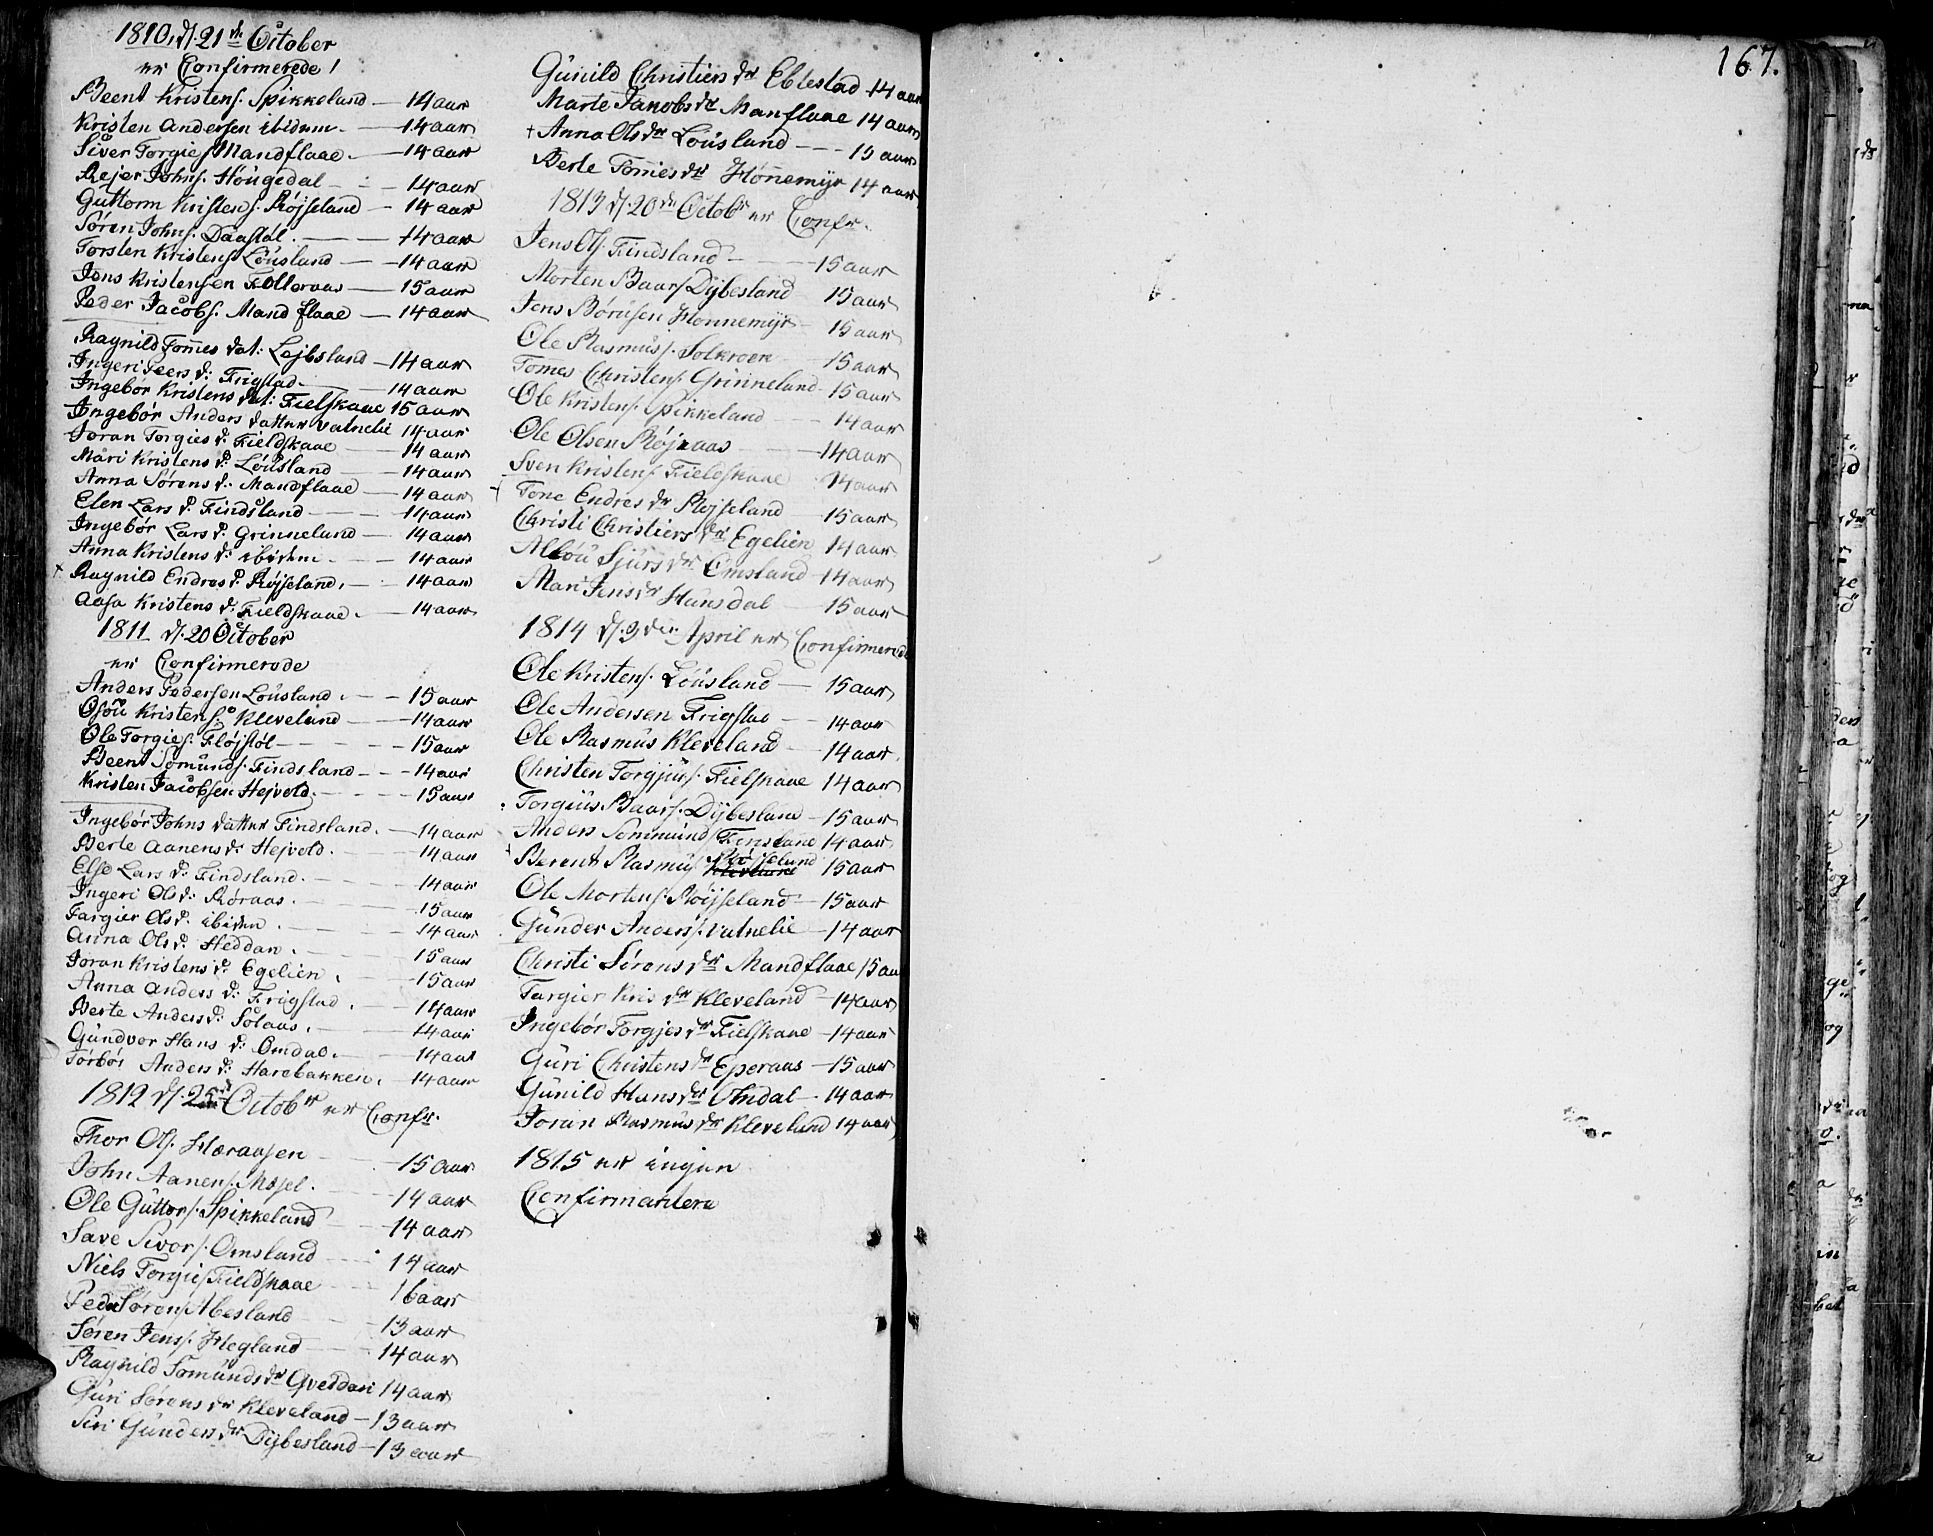 1810, d. 21de October
er Confirmerede /
Beent Kristens. Spikkeland — 14 aar
Kristen Andersen ibidem — 14 aar
Siver Torgies. Mandflaae — 14 aar
Rejer Johns. Hougedal — 14 aar
Guttorm Kristens. Røjseland — 14 aar
Søren Johns. Daastøl — 14 aar
Torsten Kristens. Lóusland — 14 aar
Jens Kristensen Folleraas — 15 aar
Peder Jacobs. Mandflaae — 14 aar
Ragnild Tomes dat: Lejbsland — 14 aar
Ingeri Seers d: Frigstad — 14 aar
Ingebor Kristens dat: Fielskaae 15 aar
Ingebor Anders datter Valnelie 14 aar
Joran Torgies d: Fieldskaae — 14 aar
Mari Kristens d: Lóusland — 14 aar
Anna Sørens d: Mandflaae — 14 aar
Elen Lars d: Findsland — 14 aar
Ingebór Lars d: Grinneland — 14 aar
Anna Kristens d: ibidem — 14 aar
+ Ragnild Endres d: Røjseland — 14 aar
Aasa Kristens d: Fieldskaae — 14 aar
1811 d. 20 October
er Confirmerede
Anders Pedersen Lóusland — 15 aar
Osóu Kristens. Kleveland — 14 aar
Ole Torgies. Fløjstól — 15 aar
Beent Tomunds. Findsland — 14 aar
Kristen Jacobsen Hejvold — 15 aar
Ingebór Johns datter Findsland — 14 aar
Berte Aanens d: Hejvold — 14 aar
Else Lars d: Findsland — 14 aar
Ingeri Ols d: Røraas — 15 aar
Targier Ols d: ibidem — 14 aar
Anna Ols d: Heddan — 15 aar
Joran Kristens d: Egelien — 15 aar
Anna Anders d: Frigstad — 14 aar
Berte Anders d: Solaas — 14 aar
Gundvor Hans d: Omdal — 14 aar
Torbór Anders d: Harebakken — 14 aar
1812 d. 25de Octobr er Confr.
Thor Ols. Høraasen — 15 aar
John Aanens. Mosel — 14 aar
Ole Guttors. Spikkeland — 14 aar
Save Sivers. Omsland — 14 aar
Niels Torgies. Fieldskaae — 16 aar
Peder Sørens. Abesland — 13 aar
Søren Jens. Hegland — 14 aar
Ragnild Tomunds dr Qverdan 14 aar
Guri Sørens dr Kleveland — 13 aar
Siri Gunders dr Dybesland — 13 aar
Gunild Christiers dr Eblestad 14 aar
Marte Jacobs dr Manflaae 14 aar
+ Anna Ols dr Lóusland — 15 aar
Berte Tomes dr Hønnemyr 14 aar
1813 d. 20de Octobr er Confr.
Jens Ols. Findsland — 15 aar
Morten Baars. Dybesland 15 aar
Jens Børusen Hønnemyr — 15 aar
Ole Rasmus. Solkroen — 15 aar
Tomes Christens. Grinneland — 15 aar
Ole Kristens. Spikkeland — 14 aar
Ole Olsen Røjraas — 14 aar
Sven Kristens. Fieldskaae 14 aar
+ Tone Endres dr Røjseland — 15 aar
Christi Christiers dr Egelien 14 aar
Albóu Sjurs dr Omsland — 14 aar
Mari Jens dr Hunsdal — 15 aar
1814 d. 3den April er Confirmerede
Ole Kristens. Lóusland — 15 aar
Ole Andersen Frigstad — 14 aar
Ole Rasmus Kleveland — 14 aar
Christen Torgjus. Fielskaae 14 aar
Torgius Baars. Dybesland — 15 aar
Anders Tommund. Finsland 14 aar
Røjseland
Berent Rasmus. Kleveland 15 aar
Ole Mortens. Røijseland — 15 aar
Gunder Anders. Valnelie — 14 aar
Christi Sørens dr Mandflaae 15 aa
Targier Kris dr Kleveland — 14 aar
Ingebór Torgjes dr Fielskaae — 14 aar
Guri Christens dr Eperaas — 15 aar
Gunild Hans dr Omdal — 14 aar
Joran Rasmus dr Kleveland 14 aar
1815 er ingen
Confirmantere
167.